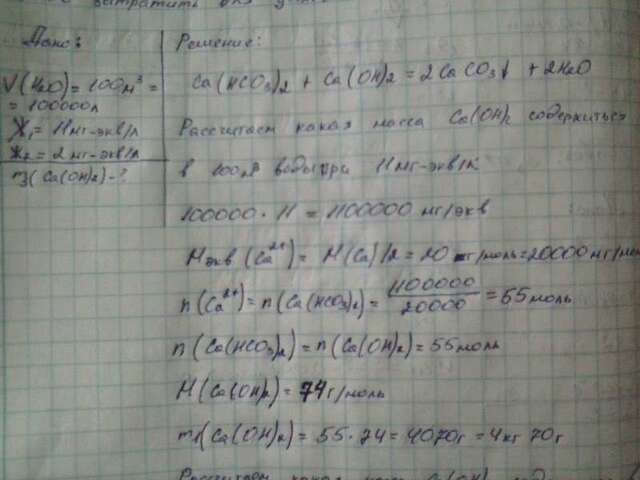 тратить для
Дано:
V(H2O) = 100 м³ =
= 100000л
Ж1 = 11 мг-экв/л
Ж2 = 2 мг-экв/л
m3(Ca(OH)2) - ?
Решение:
Ca(HCO3)2 + Ca(OH)2 = 2CaCO3↓ + 2H2O
Рассчитаем какая масса Ca(OH)2 содержиться
в 100м³ воды при 11 мг-экв/л
100000 · 11 = 1100000 мг/экв
Mэкв (Ca²⁺) = M(Ca)/2 = 20 г/моль = 20000 мг/моль
n(Ca²⁺) = n(Ca(HCO3)2) = 1100000/20000 = 55 моль
n(Ca(HCO3)2) = n(Ca(OH)2) = 55 моль
M(Ca(OH)2) = 74 г/моль
m1(Ca(OH)2) = 55 · 74 = 4070г = 4кг 70г
Рассчитаем какая Ca(OH)